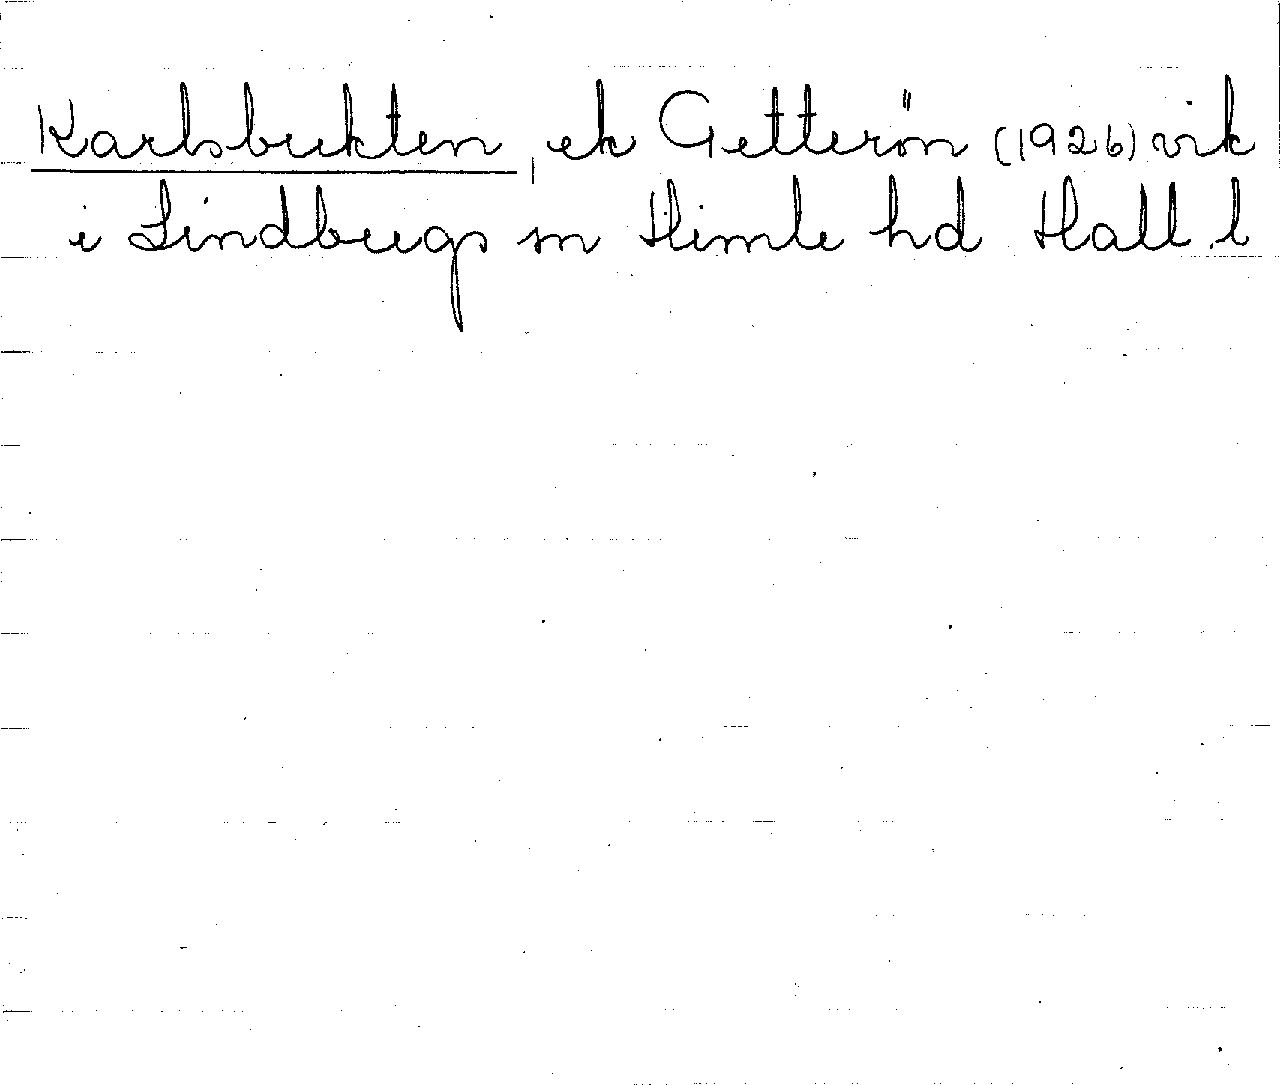 Karlsbukten, ek Getterön (1926) vik
i Lindbergs sn Himle hd Hall. l